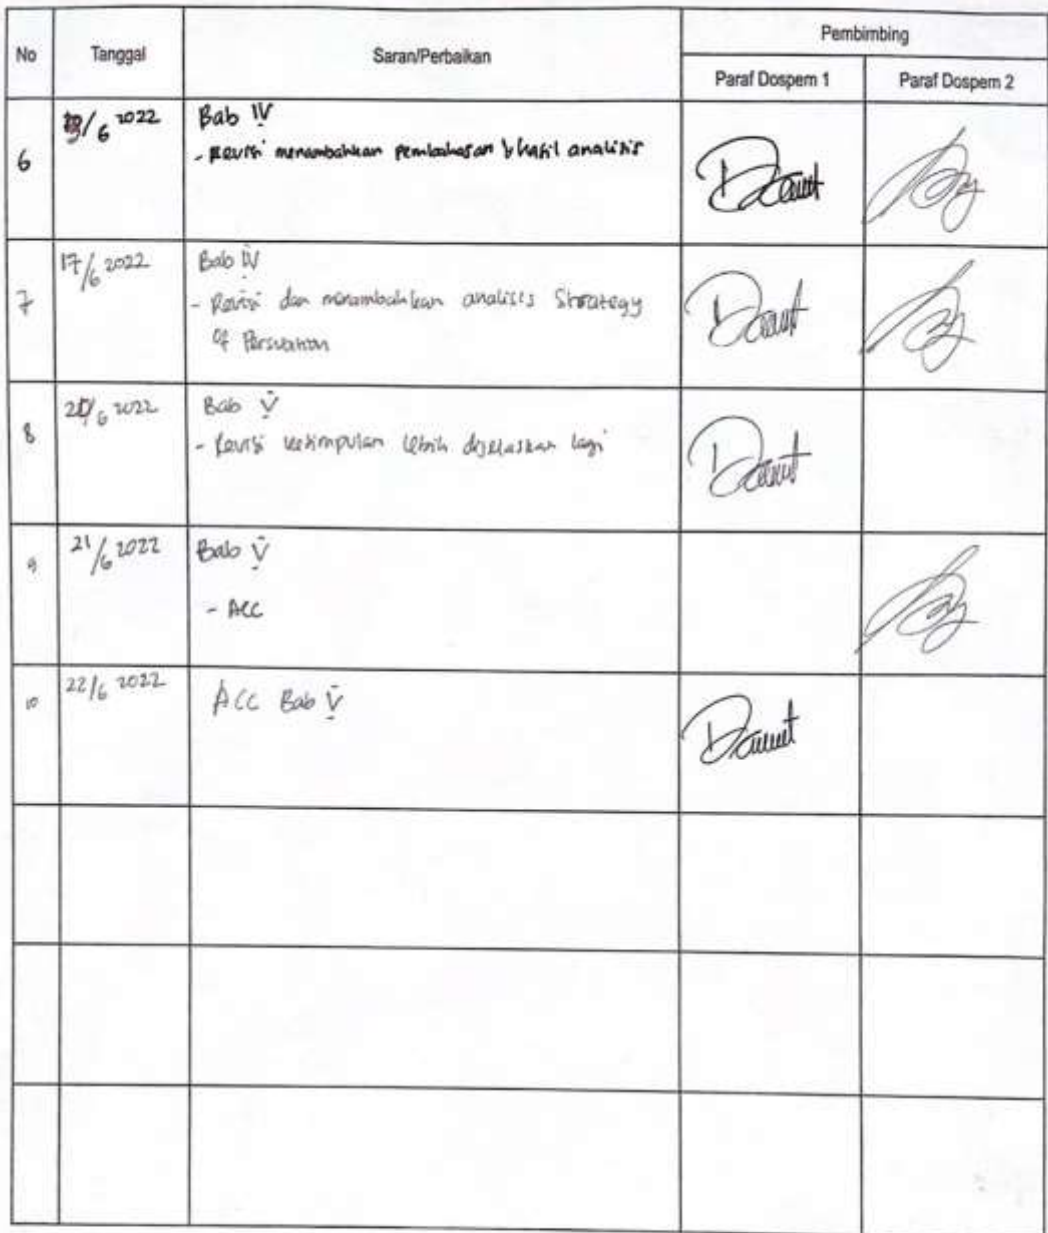 No Tanggal Saran/Perbaikan Pembimbing
Paraf Dospem 1 Paraf Dospem 2
6 /6 2022 Bab IV
- Revisi menambahkan pembahasan hasil analisis
7 17/6 2022 Bab IV
- Revisi dan menambahkan analisis Strategy
Of Persuation
8 /6 2022 Bab V
- Revisi kesimpulan lebih dijelaskan lagi
9 21/6 2022 Bab V
- ACC
10 22/6 2022 ACC Bab V